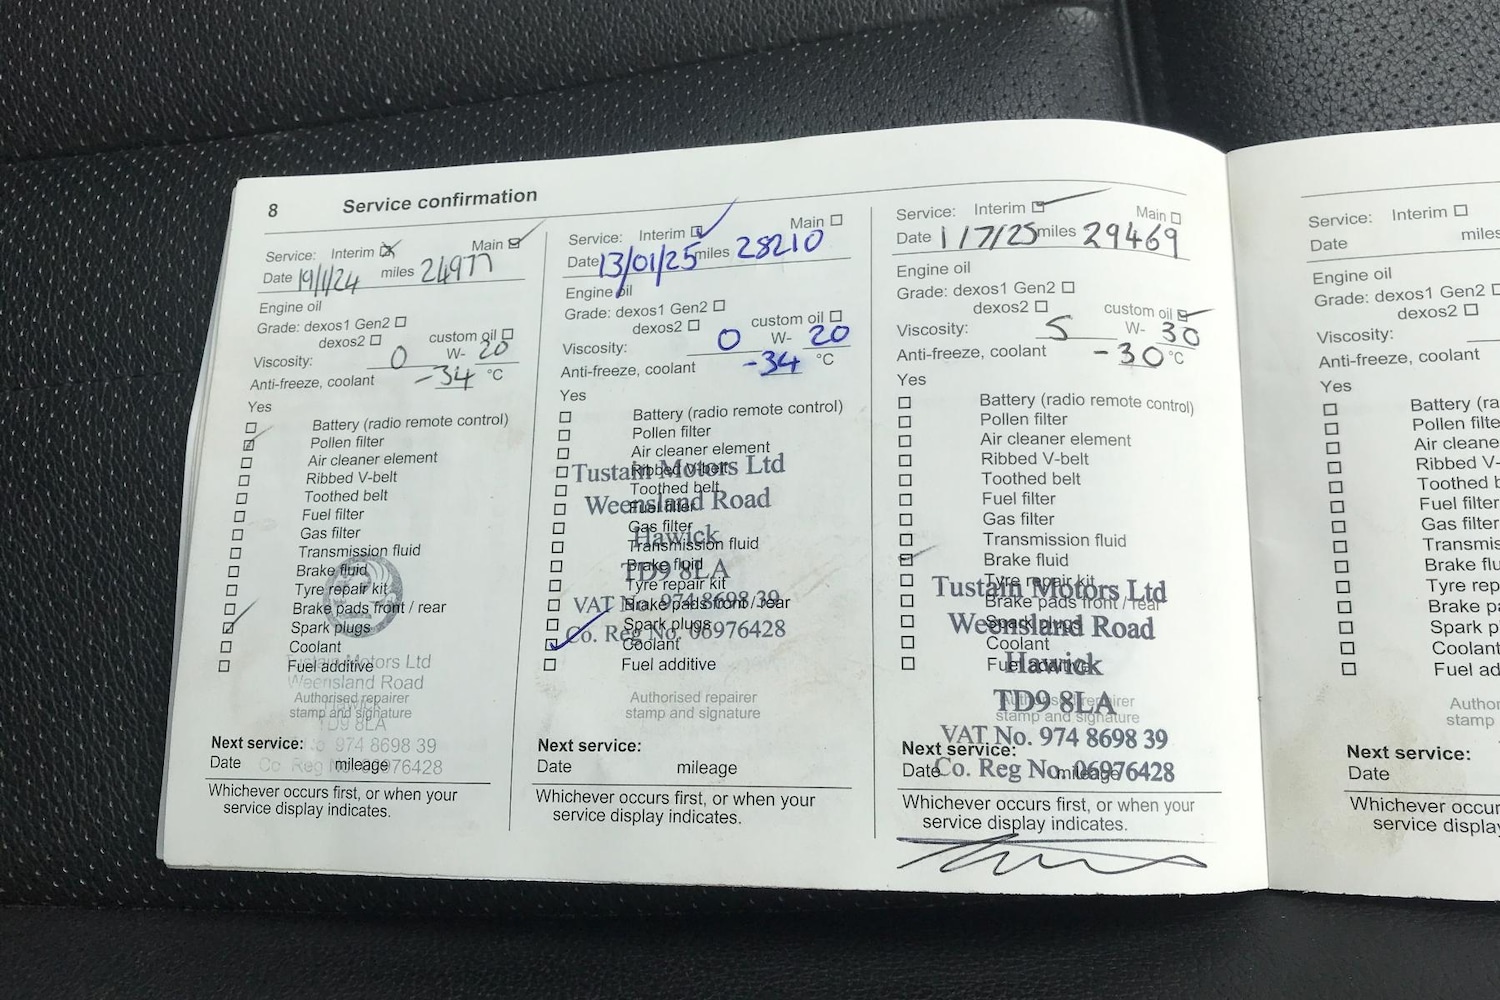 8 Service confirmation
Service: Interim Main
Date 19/1/24 miles 24977
Engine oil
Grade: dexos1 Gen2
dexos2 custom oil
Viscosity: 0 W- 20
Anti-freeze, coolant -34 °C
Yes
Battery (radio remote control)
Pollen filter
Air cleaner element
Ribbed V-belt
Toothed belt
Fuel filter
Gas filter
Transmission fluid
Brake fluid
Tyre repair kit
Brake pads front / rear
Spark plugs
Coolant
Fuel additive
Tustain Motors Ltd
Weensland Road
Authorised repairer
stamp and signature
TD9 8LA
Next service: No 974 8698 39
Date mileage
Co Reg No 06976428
Whichever occurs first, or when your
service display indicates.
Service: Interim Main
Date 13/01/25 miles 28210
Engine oil
Grade: dexos1 Gen2
dexos2 custom oil
Viscosity: 0 W- 20
Anti-freeze, coolant -34 °C
Yes
Battery (radio remote control)
Pollen filter
Air cleaner element
Ribbed V-belt
Tustain Motors Ltd
Toothed belt
Weensland Road
Fuel filter
Gas filter
Hawick
Transmission fluid
Brake fluid
TD9 8LA
Tyre repair kit
Brake pads front / rear
VAT No. 974 8698 39
Spark plugs
Co. Reg No. 06976428
Coolant
Fuel additive
Authorised repairer
stamp and signature
Next service:
Date mileage
Whichever occurs first, or when your
service display indicates.
Service: Interim Main
Date 1/7/25 miles 29469
Engine oil
Grade: dexos1 Gen2
dexos2 custom oil
Viscosity: 5 W- 30
Anti-freeze, coolant -30 °C
Yes
Battery (radio remote control)
Pollen filter
Air cleaner element
Ribbed V-belt
Toothed belt
Fuel filter
Gas filter
Transmission fluid
Brake fluid
Tyre repair kit
Tustain Motors Ltd
Brake pads front / rear
Spark plugs
Weensland Road
Coolant
Fuel additive
Hawick
Authorised repairer
TD9 8LA
stamp and signature
VAT No. 974 8698 39
Next service:
Date mileage
Co. Reg No. 06976428
Whichever occurs first, or when your
service display indicates.
Service: Interim
Date miles
Engine oil
Grade: dexos1 Gen2
dexos2
Viscosity:
Anti-freeze, coolant
Yes
Battery (ra
Pollen filte
Air cleane
Ribbed V-
Toothed b
Fuel filter
Gas filter
Transmis
Brake flu
Tyre rep
Brake pa
Spark pl
Coolant
Fuel ad
Author
stamp
Next service:
Date
Whichever occur
service display